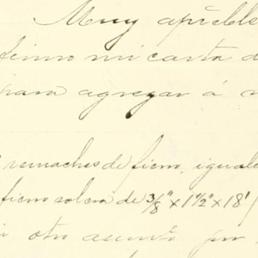 Muy apreble
mi carta d
para agregar á
remaches de fierro, iguale
fierro solera de 3/8" x 1 1/2" x 18'
otro asunto por